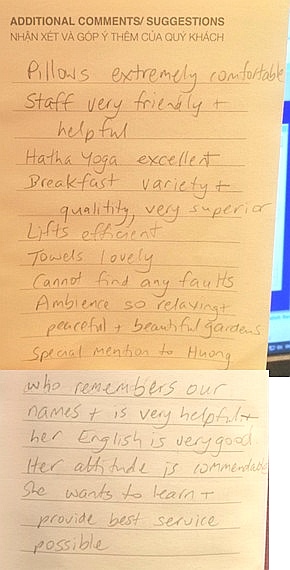 ADDITIONAL COMMENTS/ SUGGESTIONS
NHẬN XÉT VÀ GÓP Ý THÊM CỦA QUÝ KHÁCH
Pillows extremely comfortable
Staff very friendly +
helpful
Hatha Yoga excellent
Breakfast variety +
qualitity, very superior
Lifts efficient
Towels lovely
Cannot find any faults
Ambience so relaxing +
peaceful + beautiful gardens
Special mention to Huong
who remembers our
names + is very helpful +
her English is very good.
Her attitude is commendable
She wants to learn +
provide best service
possible